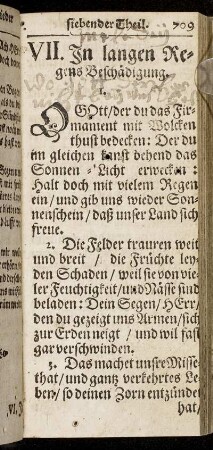 siebender Theil. 709
VII. In langen Re-
gens Beschädigung.
1.
O GOtt/der du das Fir-
mament mit Wolcken
thust bedecken: Der du
im gleichen kanst behend das
Sonnen-Licht erwecken:
Halt doch mit vielem Regen
ein/und gib uns wieder Son-
nenschein/daß unser Land sich
freue.
2. Die Felder trauren weit
und breit/die Früchte ley-
den Schaden/weil sie von vie-
ler Feuchtigkeit/und Nässe sind
beladen: Dein Segen/HErr/
den du gezeigt uns Armen/sich
zur Erden neigt/und wil fast
gar verschwinden.
3. Das machet unsre Misse-
that/und gantz verkehrtes Le-
ben/so deinen Zorn entzündet
hat/